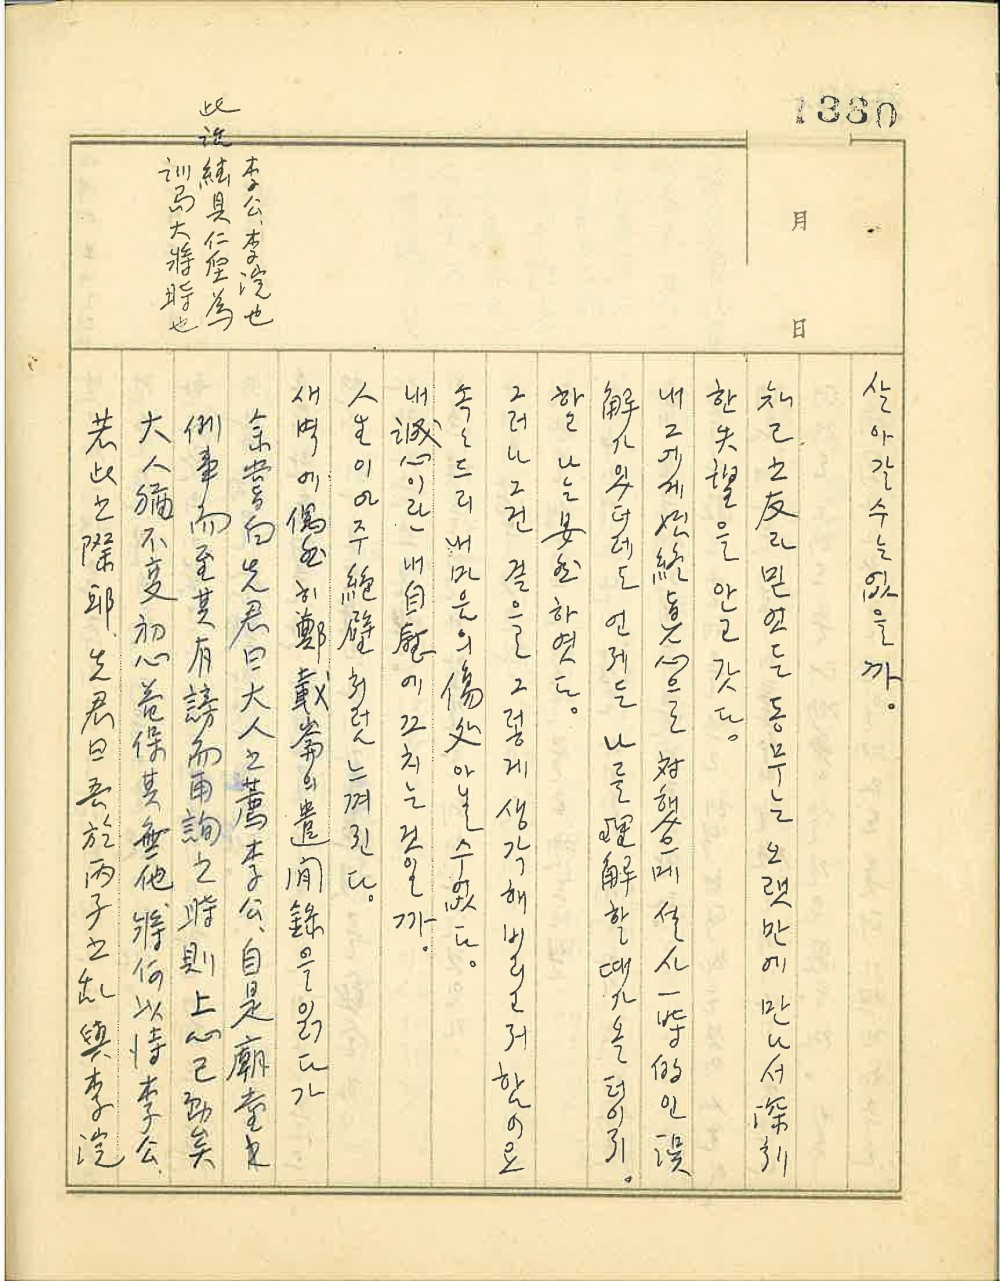 1380
月
日
살아갈수는없을까。
知己之友라믿엇든동무는오랫만에만나서深刻
한失望을안고갓다。
내그에게始終眞心으로対햇음에설사一時的인誤
解가잇더래도언제든나를理解할때가올터이지。
할 나는 하엿다。
그러나그건결으를그렇게생각해버리고저함이요
속드리내마음의傷處아닐수없다。
내誠心이란내自慰에끄치는것일까。
人生이아주絶壁처럼느껴진다。
새벽에偶然히鄭載崙의遣閒錄을읽다가
余嘗白先君曰大人之薦李公、自是廟堂之
例事而至其有謗而再詢之時則上心已動矣
大人猶不变初心益保其無他将何以恃李公、
若此之深耶、先君曰吾於丙子之乱與李浣
李公、李浣也
此説 継具仁垕為
訓局大将時也